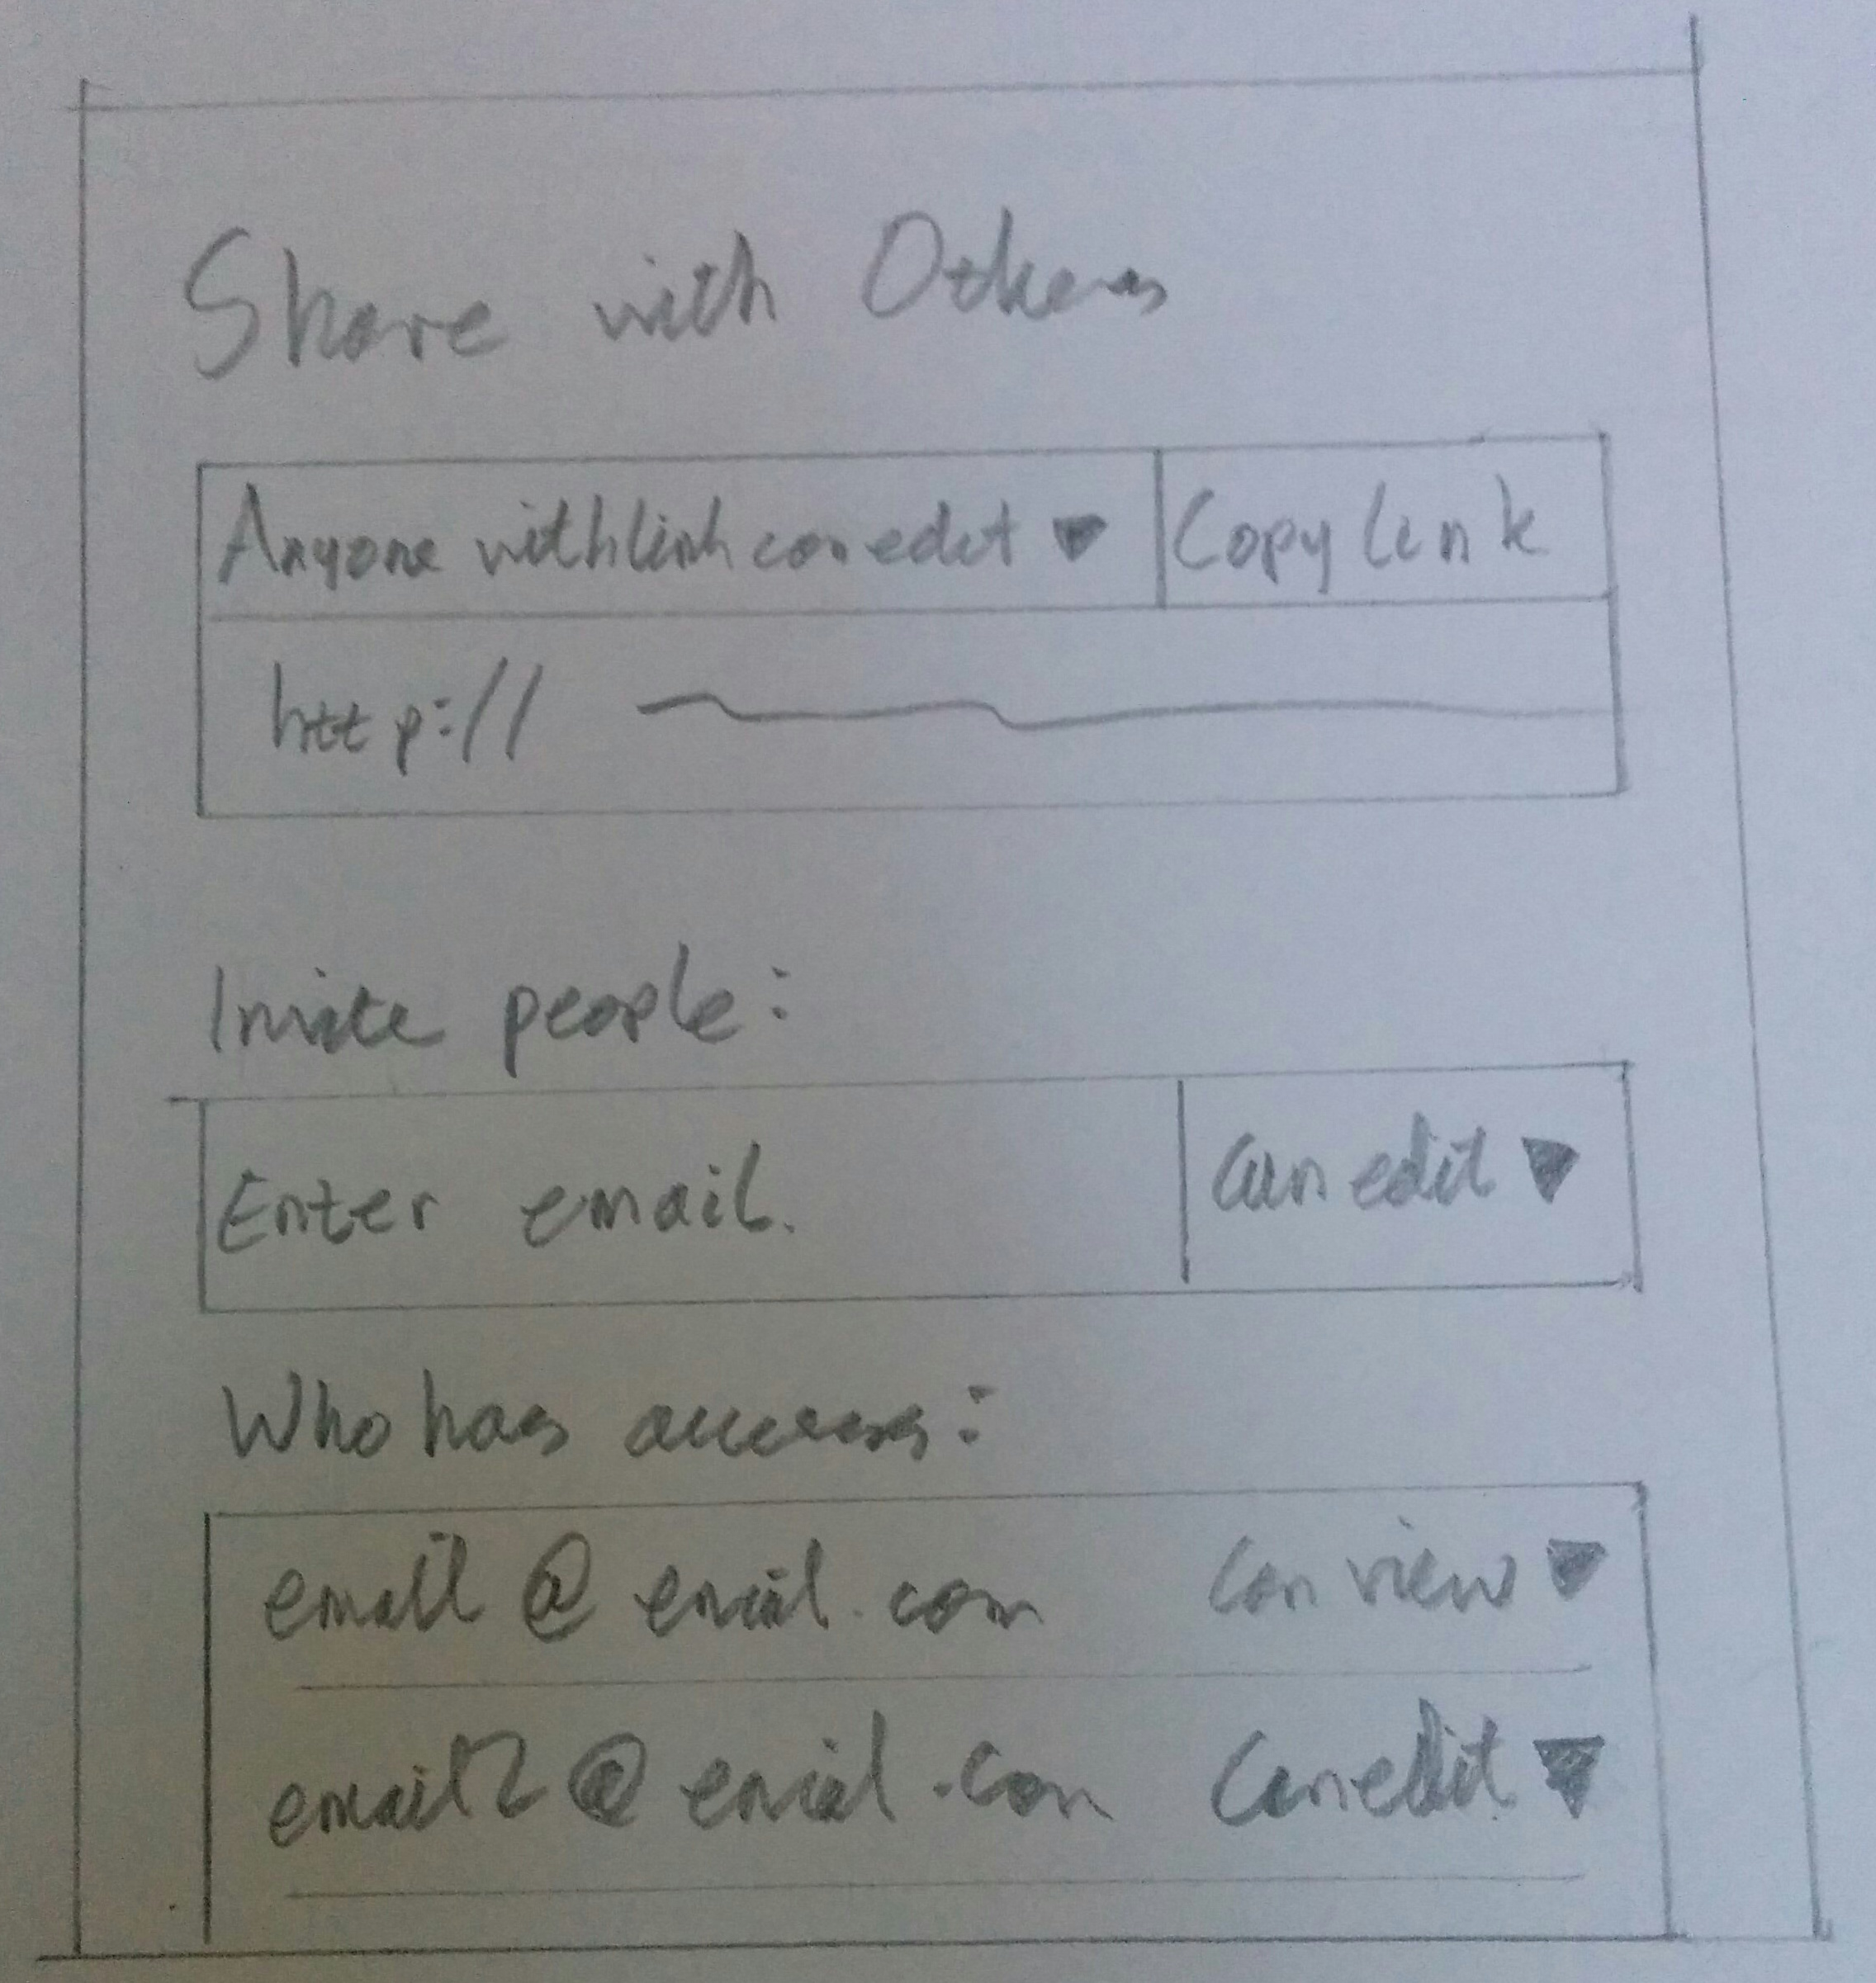 Share with Others
Anyone with link can edit ▼ Copy link
http://
Invite people:
Enter email.
Can edit ▼
Who has access:
email@email.com Can view ▼
email2@email.com Can edit ▼